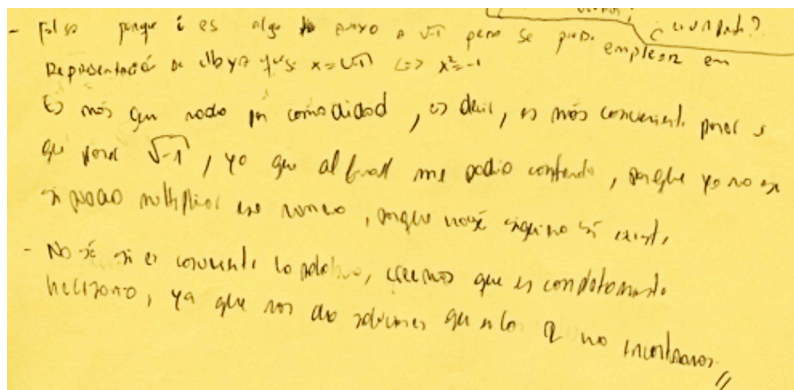 - Falso porque i es algo a √-1 pero se puede emplear en
¿cuando?
Representación de ello ya que x=√-1 <=> x²=-1
Es más que nada por comodidad, es decir, es más conveniente poner i
que poner √-1, ya que al final me podía confundir, porque yo no sé
si puedo multiplicar ese número, porque no sé siquiera si existe.
- No sé si es conveniente la palabra, creemos que es completamente
necesario, ya que nos da soluciones que en los R no encontramos.